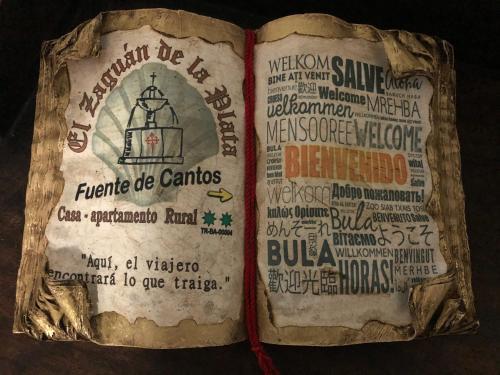 El Zaguán de la Plata
Fuente de Cantos
Casa - apartamento Rural
TR-BA-00004
"Aquí, el viajero
encontrará lo que traiga."
WELKOM
BINE AȚI VENIT
SALVE
Aloha
bienvenue
歡迎
Welcome
MREHBA
velkommen
MENSOOREE
WELCOME
BULA
BIENVENIDO
Добро пожаловать!
καλώς ορίσατε
Bula
BENVENUTO
Salve
めんそーれ
歡迎
Вітаємо
ようこそ
WILLKOMMEN
BENVINGUT
BULA
MERHBE
歡迎光臨
HORAS!